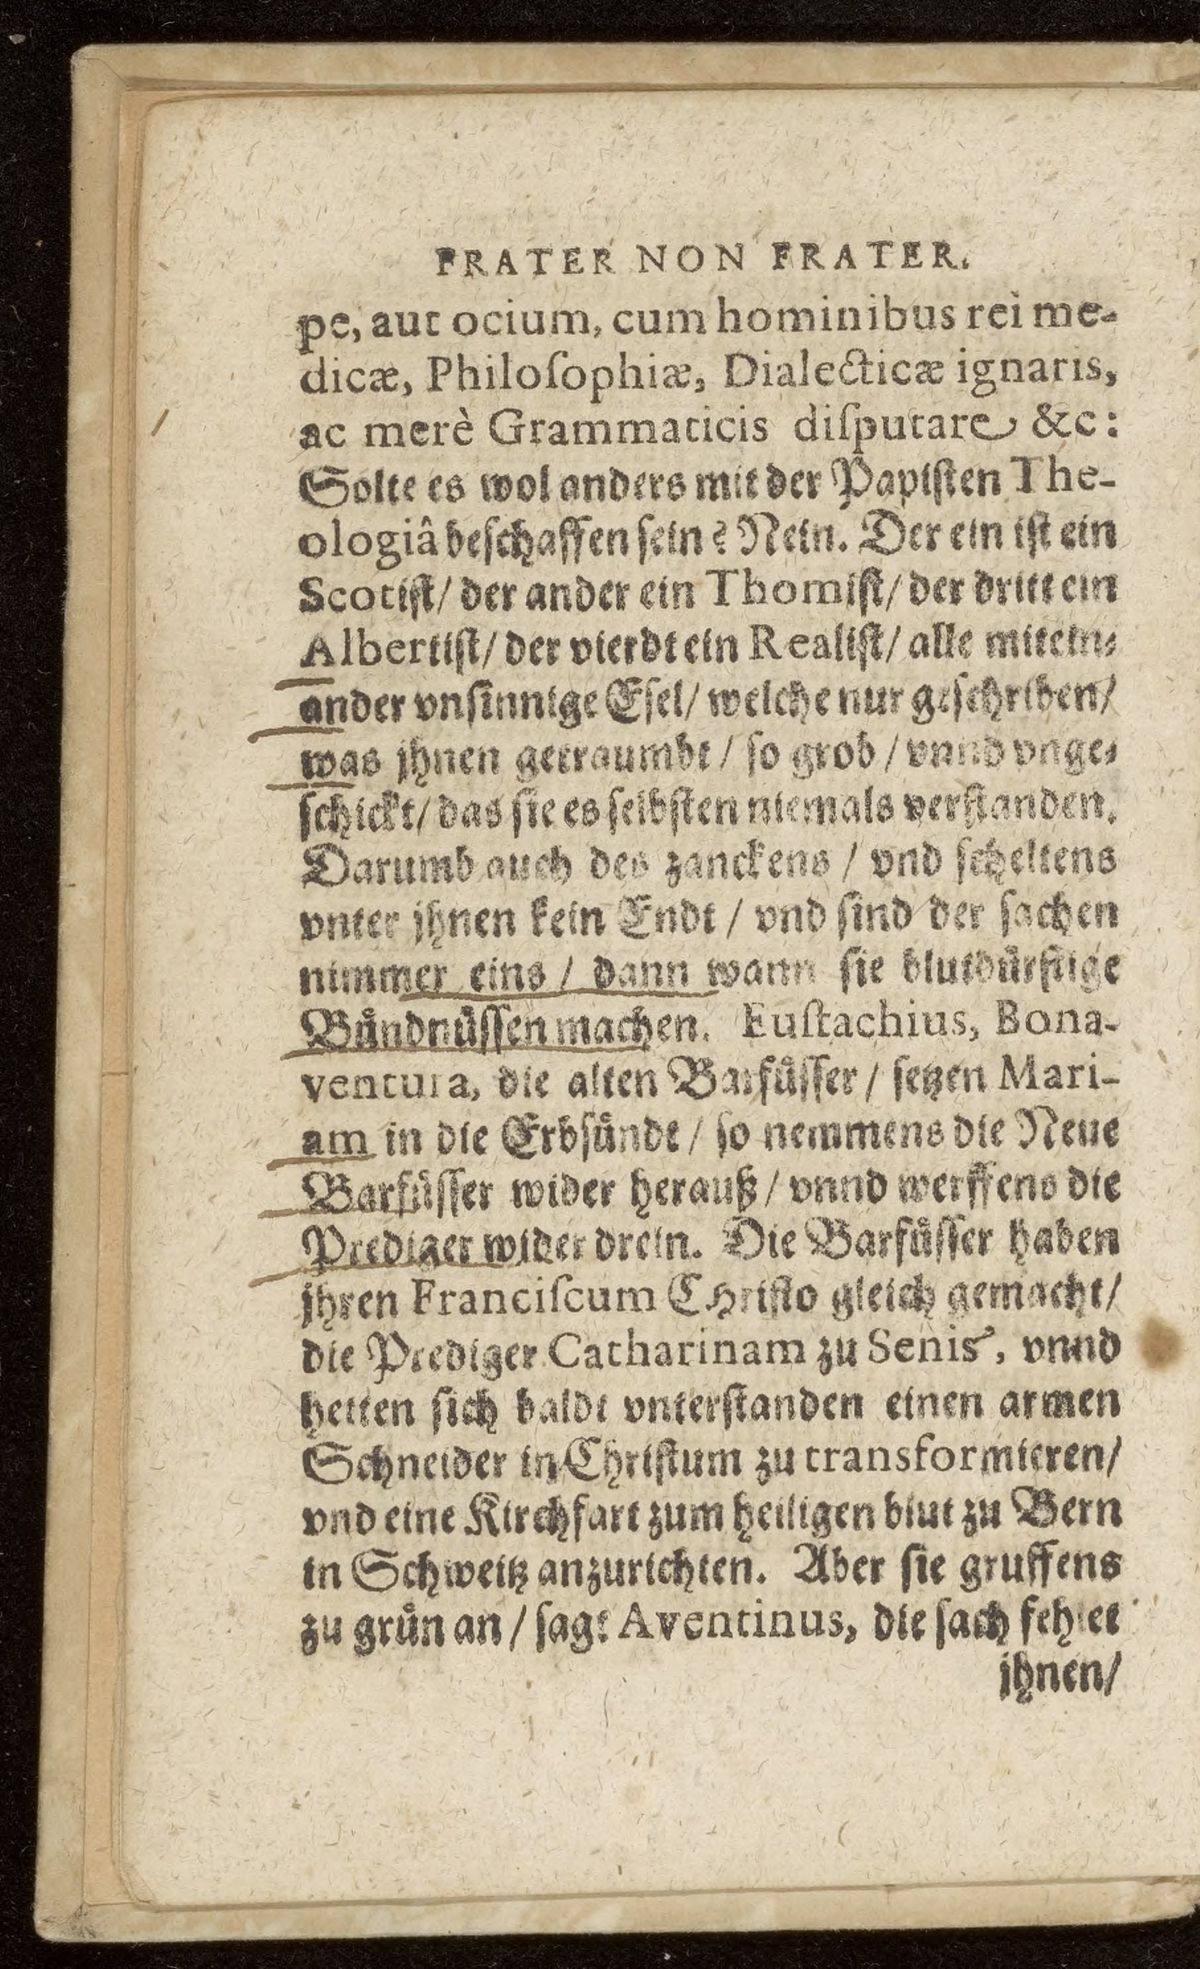 FRATER NON FRATER.
pe, aut ocium, cum hominibus rei me-
dicæ, Philoſophiæ, Dialecticæ ignaris,
ac merè Grammaticis diſputare &c:
Solte es wol anders mit der Papiſten The-
ologiâ beſchaffen ſein? Nein. Der ein iſt ein
Scotiſt/ der ander ein Thomiſt/ der dritt ein
Albertiſt/ der vierdt ein Realiſt/ alle mitein-
ander vnſinnige Eſel/ welche nur geſchriben/
was jhnen getraumbt / ſo grob / vnnd vnge-
ſchickt/ das ſie es ſelbſten niemals verſtanden.
Darumb auch des zanckens / vnd ſcheltens
vnter jhnen kein Endt / vnd ſind der ſachen
nimmer eins / dann wann ſie blutdürſtige
Bündnüſſen machen. Euſtachius, Bona-
ventura, die alten Barfüſſer / ſetzen Mari-
am in die Erbſündt / ſo nemmens die Neue
Barfüſſer wider herauß / vnnd werffens die
Prediger wider drein. Die Barfüſſer haben
jhren Franciſcum CHriſto gleich gemacht/
die Prediger Catharinam zu Senis, vnnd
hetten ſich baldt vnterſtanden einen armen
Schneider in Chriſtum zu transformieren/
vnd eine Kirchfart zum heiligen blut zu Bern
in Schweitz anzurichten. Aber ſie gruffens
zu grün an / ſagt Aventinus, die ſach fehlet
jhnen/